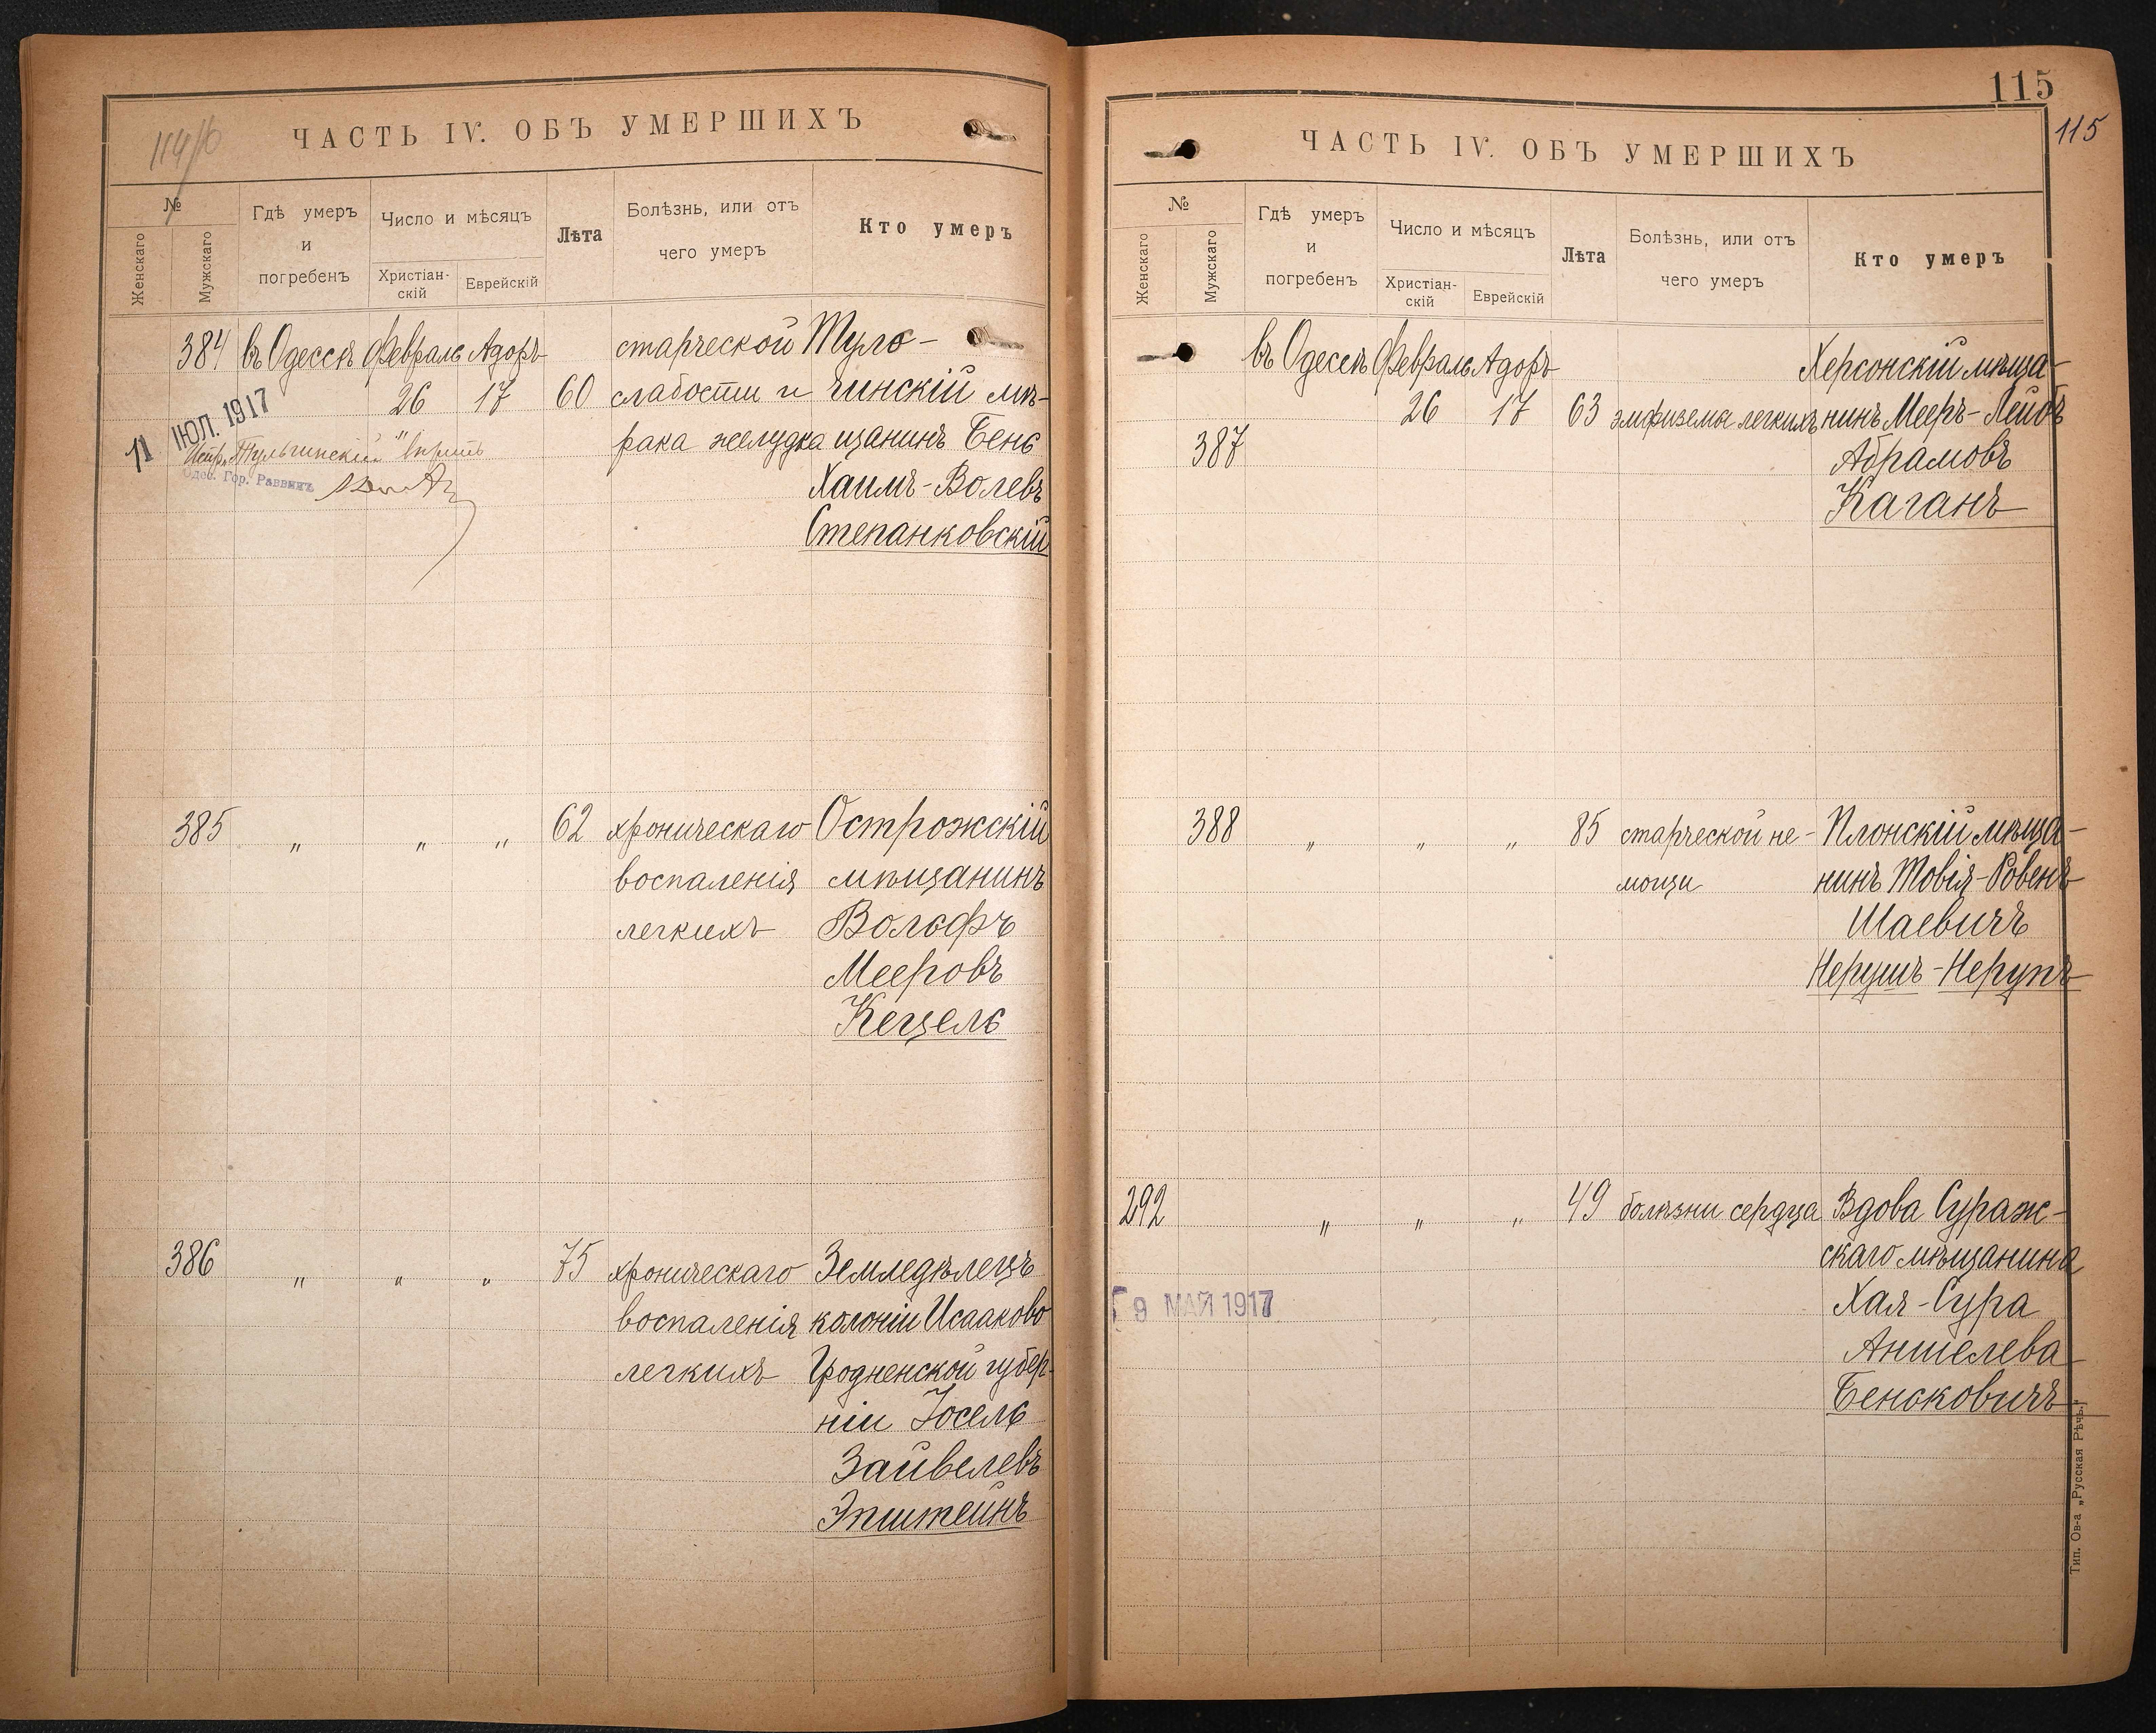 114/б
ЧАСТЬ IV. ОБЪ УМЕРШИХЪ
№
Женскаго
Мужскаго
Гдѣ умеръ
и
погребенъ
Число и мѣсяцъ
Христіан-
скій
Еврейскій
Лѣта
Болѣзнь, или отъ
чего умеръ
Кто умеръ
384 въ Одессѣ Февраль Адоръ старческой Туль-
26 17 60 слабости и чинскій мѣ-
рака желудка щанинъ Бень
Хаимъ-Волевъ
Степанковскій
11 ІЮЛ. 1917
Испр. "Тульчинскій" вѣрить
Одес. Гор. Раввинъ
385 " " " 62 хроническаго Острожскій
воспаленія мѣщанинъ
легкихъ Вольфъ
Мееровъ
Кецель
386 " " " 75 хроническаго Земледѣлецъ
воспаленія колоніи Исааково
легкихъ Гродненской губер-
ніи Іосель
Зайвелевъ
Эпштейнъ
115
115
ЧАСТЬ IV. ОБЪ УМЕРШИХЪ
№
Женскаго
Мужскаго
Гдѣ умеръ
и
погребенъ
Число и мѣсяцъ
Христіан-
скій
Еврейскій
Лѣта
Болѣзнь, или отъ
чего умеръ
Кто умеръ
въ Одессѣ Февраль Адоръ Херсонскій мѣща-
26 17 63 эмфизема легкихъ нинъ Мееръ-Лейбъ
387 Абрамовъ
Каганъ
388 " " " 85 старческой не- Плонскій мѣща-
мощи нинъ Товія-Ровенъ
Шаевичъ
Нерушъ-Нерупъ
292 " " " 49 болѣзни сердца Вдова Сураж-
скаго мѣщанина
9 МАЙ 1917 Хая-Сура
Аншелева
Бенсковичъ
Тип. Ов-а „Русская Рѣчь."